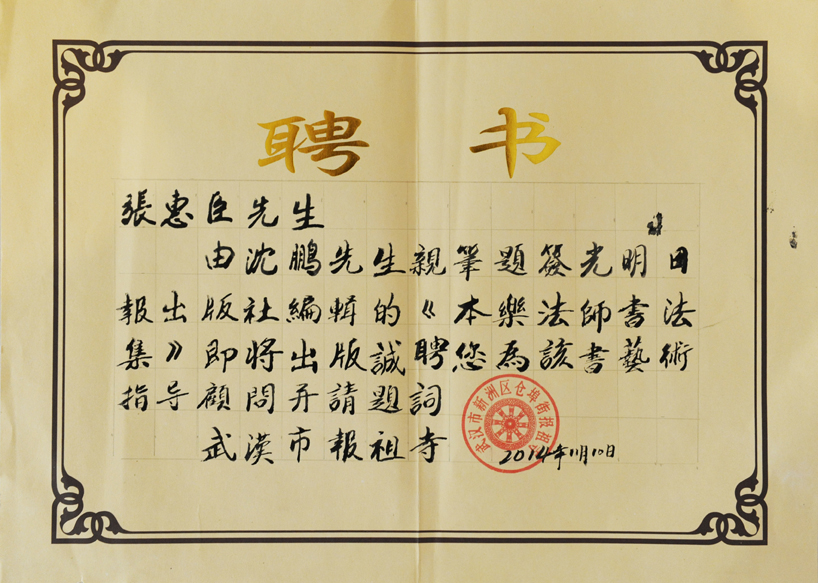 聘书
張惠臣先生
由沈鵬先生親筆題簽光明日
報出版社編輯的《本樂法師書法
集》即将出版誠聘您為該書藝術
指导顧問并請題詞
武漢市報祖寺
武汉市新洲区仓埠街报祖寺
2014年11月10日